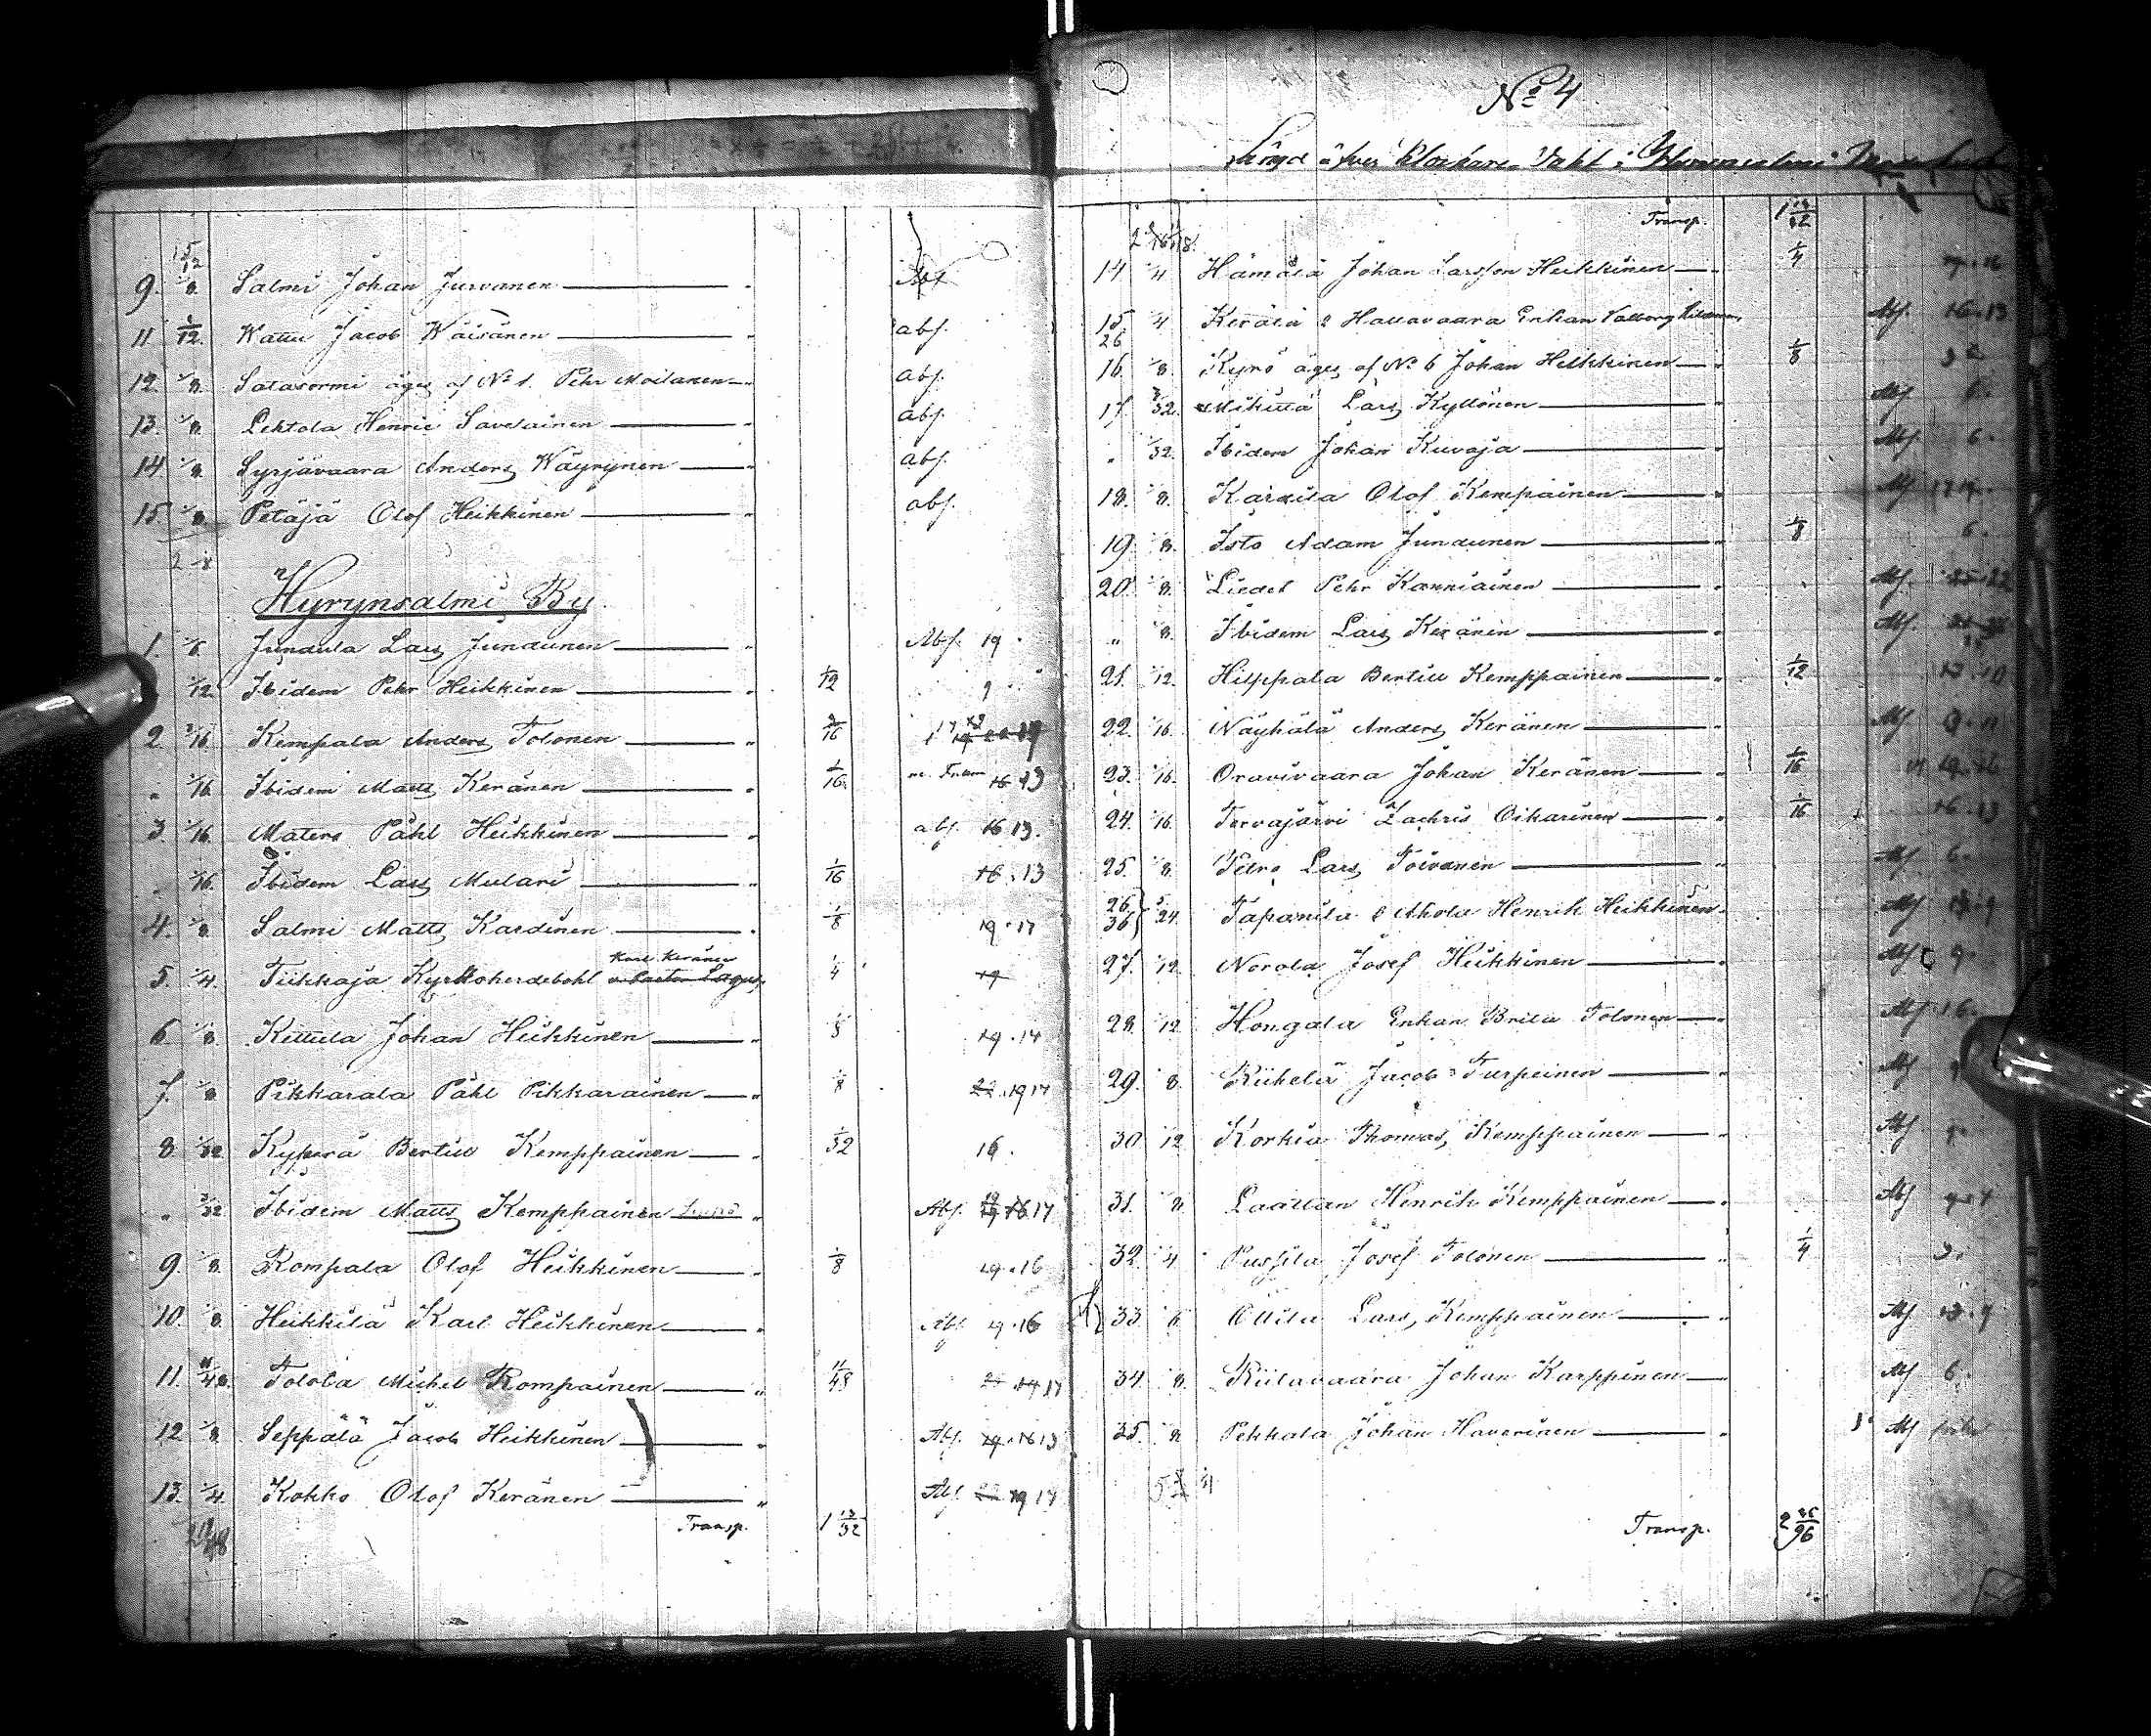 15/12
9. 1/8. Salmi Johan Jurvanen — " Abs
11 1/12. Wattu Jacob Wäisänen — " abs.
12. 1/8. Satasormi äges af No 1. Pehr Moilanen — " abs.
13. 1/8. Lehtola Henric Savelainen — " abs.
14 1/8 Syrjävaara Anders Wäyrynen — " abs.
15. 1/8. Petäjä Olof Heikkinen — " abs.
Hyrynsalmi By.
1. 1/6 Jundula Lars Jundunen — " Abs. 19.
" 1/12. Ibidem Pehr Heikkinen — " 1/12 9
2. 3/16. Kempala Anders Tolonen — " 3/16
" 1/16. Ibidem Matts Keränen — " 1/16. 16 13
3 1/16. Matero Påhl Heikkinen — " abs. 16 13.
" 1/16. Ibidem Lars Mulari — " 1/16 16.13
4. 1/8. Salmi Matts Kardinen — " 1/8 19.17
Karl Keränen
5. 1/4. Tiikkaja Kyrkoherdebohl 1/4 19
6. 1/8. Kettula Johan Heikkinen — " 1/8 19.14
7. 1/8 Pikkarala Påhl Pikkarainen — " 1/8 22.19 17
8. 1/32 Kyperä Bertill Kemppainen — " 1/32 16.
" 3/32 Ibidem Matts Kemppainen " Abs. 17
9. 1/8. Kompala Olof Heikkinen — " 1/8 19.16
10. 1/8. Heikkilä Karl Heikkinen — " Abs 19.16
11. 11/48. Tolola Michel Kompainen — " 11/48
12 1/8 Seppälä Jacob Heikkinen — " Abs. 19.16 13
13. 1/4. Kokko Olof Keränen — " Abs.
Transp. 1 13/32
No 4
Längd öfver Klockare Vahl i Hyrynsalmi
Transp. 1 13/32
14 1/4 Hämälä Johan Larsson Heikkinen — 1/4
15 26 1/4 Kerälä & Hallavaara Enkan Valborg Abs. 16.13
16 1/8. Kyrö äges af No 6 Johan Heikkinen — " 1/8
17. 3/32. Mikitta Lars Kyllönen — " Abs 6.
" 1/32. Ibidem Johan Kuvaja — " Abs. 6.
18. 1/8. Karkila Olof Kempainen — " Abs
19. 1/8. Isto Adam Jundunen — " 1/8 6.
20. 1/8. Liedet Pehr Kanniainen — " Abs. 25.22
" 1/8. Ibidem Lars Keränen — " Abs.
21. 1/12. Hilppala Bertill Kemppainen — " 1/12
22. 1/16. Näyhälä Anders Keränen — " Abs. 9.
23. 1/16. Oravivaara Johan Keränen — " 1/16
24. 1/16. Tervajärvi Zachris Oikarinen — " 1/16 16.13
25. 1/8. Petro Lars Toivanen — " Abs 6
26. 36 } 5/24. Tapanila & Ahola Henrik Heikkinen " Abs
27. 1/12. Norola Josef Heikkinen — " Abs 9.
28. 1/12. Hongala Enkan Brita Tolonen — " Abs. 16.
29. 1/8. Kiihelä Jacob Turpeinen — " Abs
30 1/12 Korkia Thomas Kemppainen — " Abs 9.
31. 1/8. Laattan Henrik Kemppainen — " Abs
32. 1/4 Pussila Josef Tolonen — " 1/4 9.
33. 1/6 Ollila Lars Kemppainen — " Abs 13.9
34. 1/8. Kiitavaara Johan Karppinen — Abs 6.
35. 1/8 Pekkala Johan Haverinen — " Abs
Transp. 2 25/96